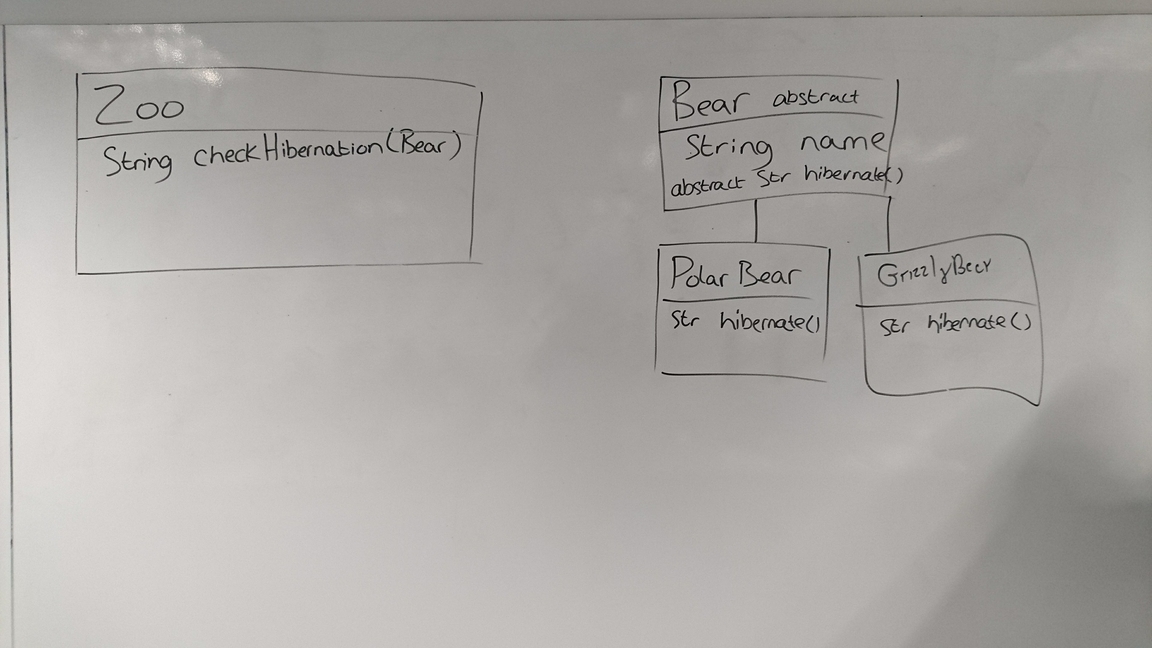 Zoo
String checkHibernation(Bear)
Bear abstract
String name
abstract Str hibernate()
Polar Bear
Str hibernate()
GrizzlyBear
Str hibernate()